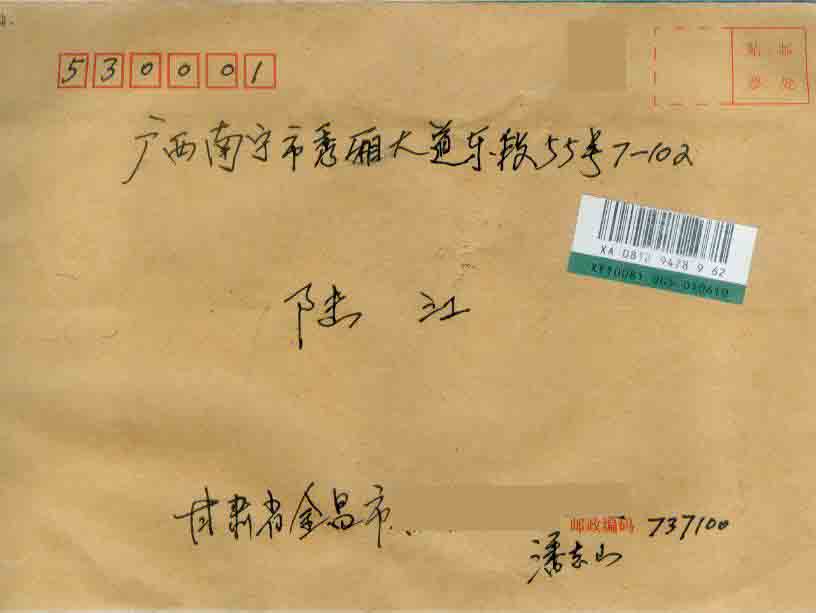 530001
贴邮
票处
广西南宁市秀厢大道东段55号7-102
XA 0812 9478 9 62
陆江
甘肃省金昌市
邮政编码 737100
潘志山